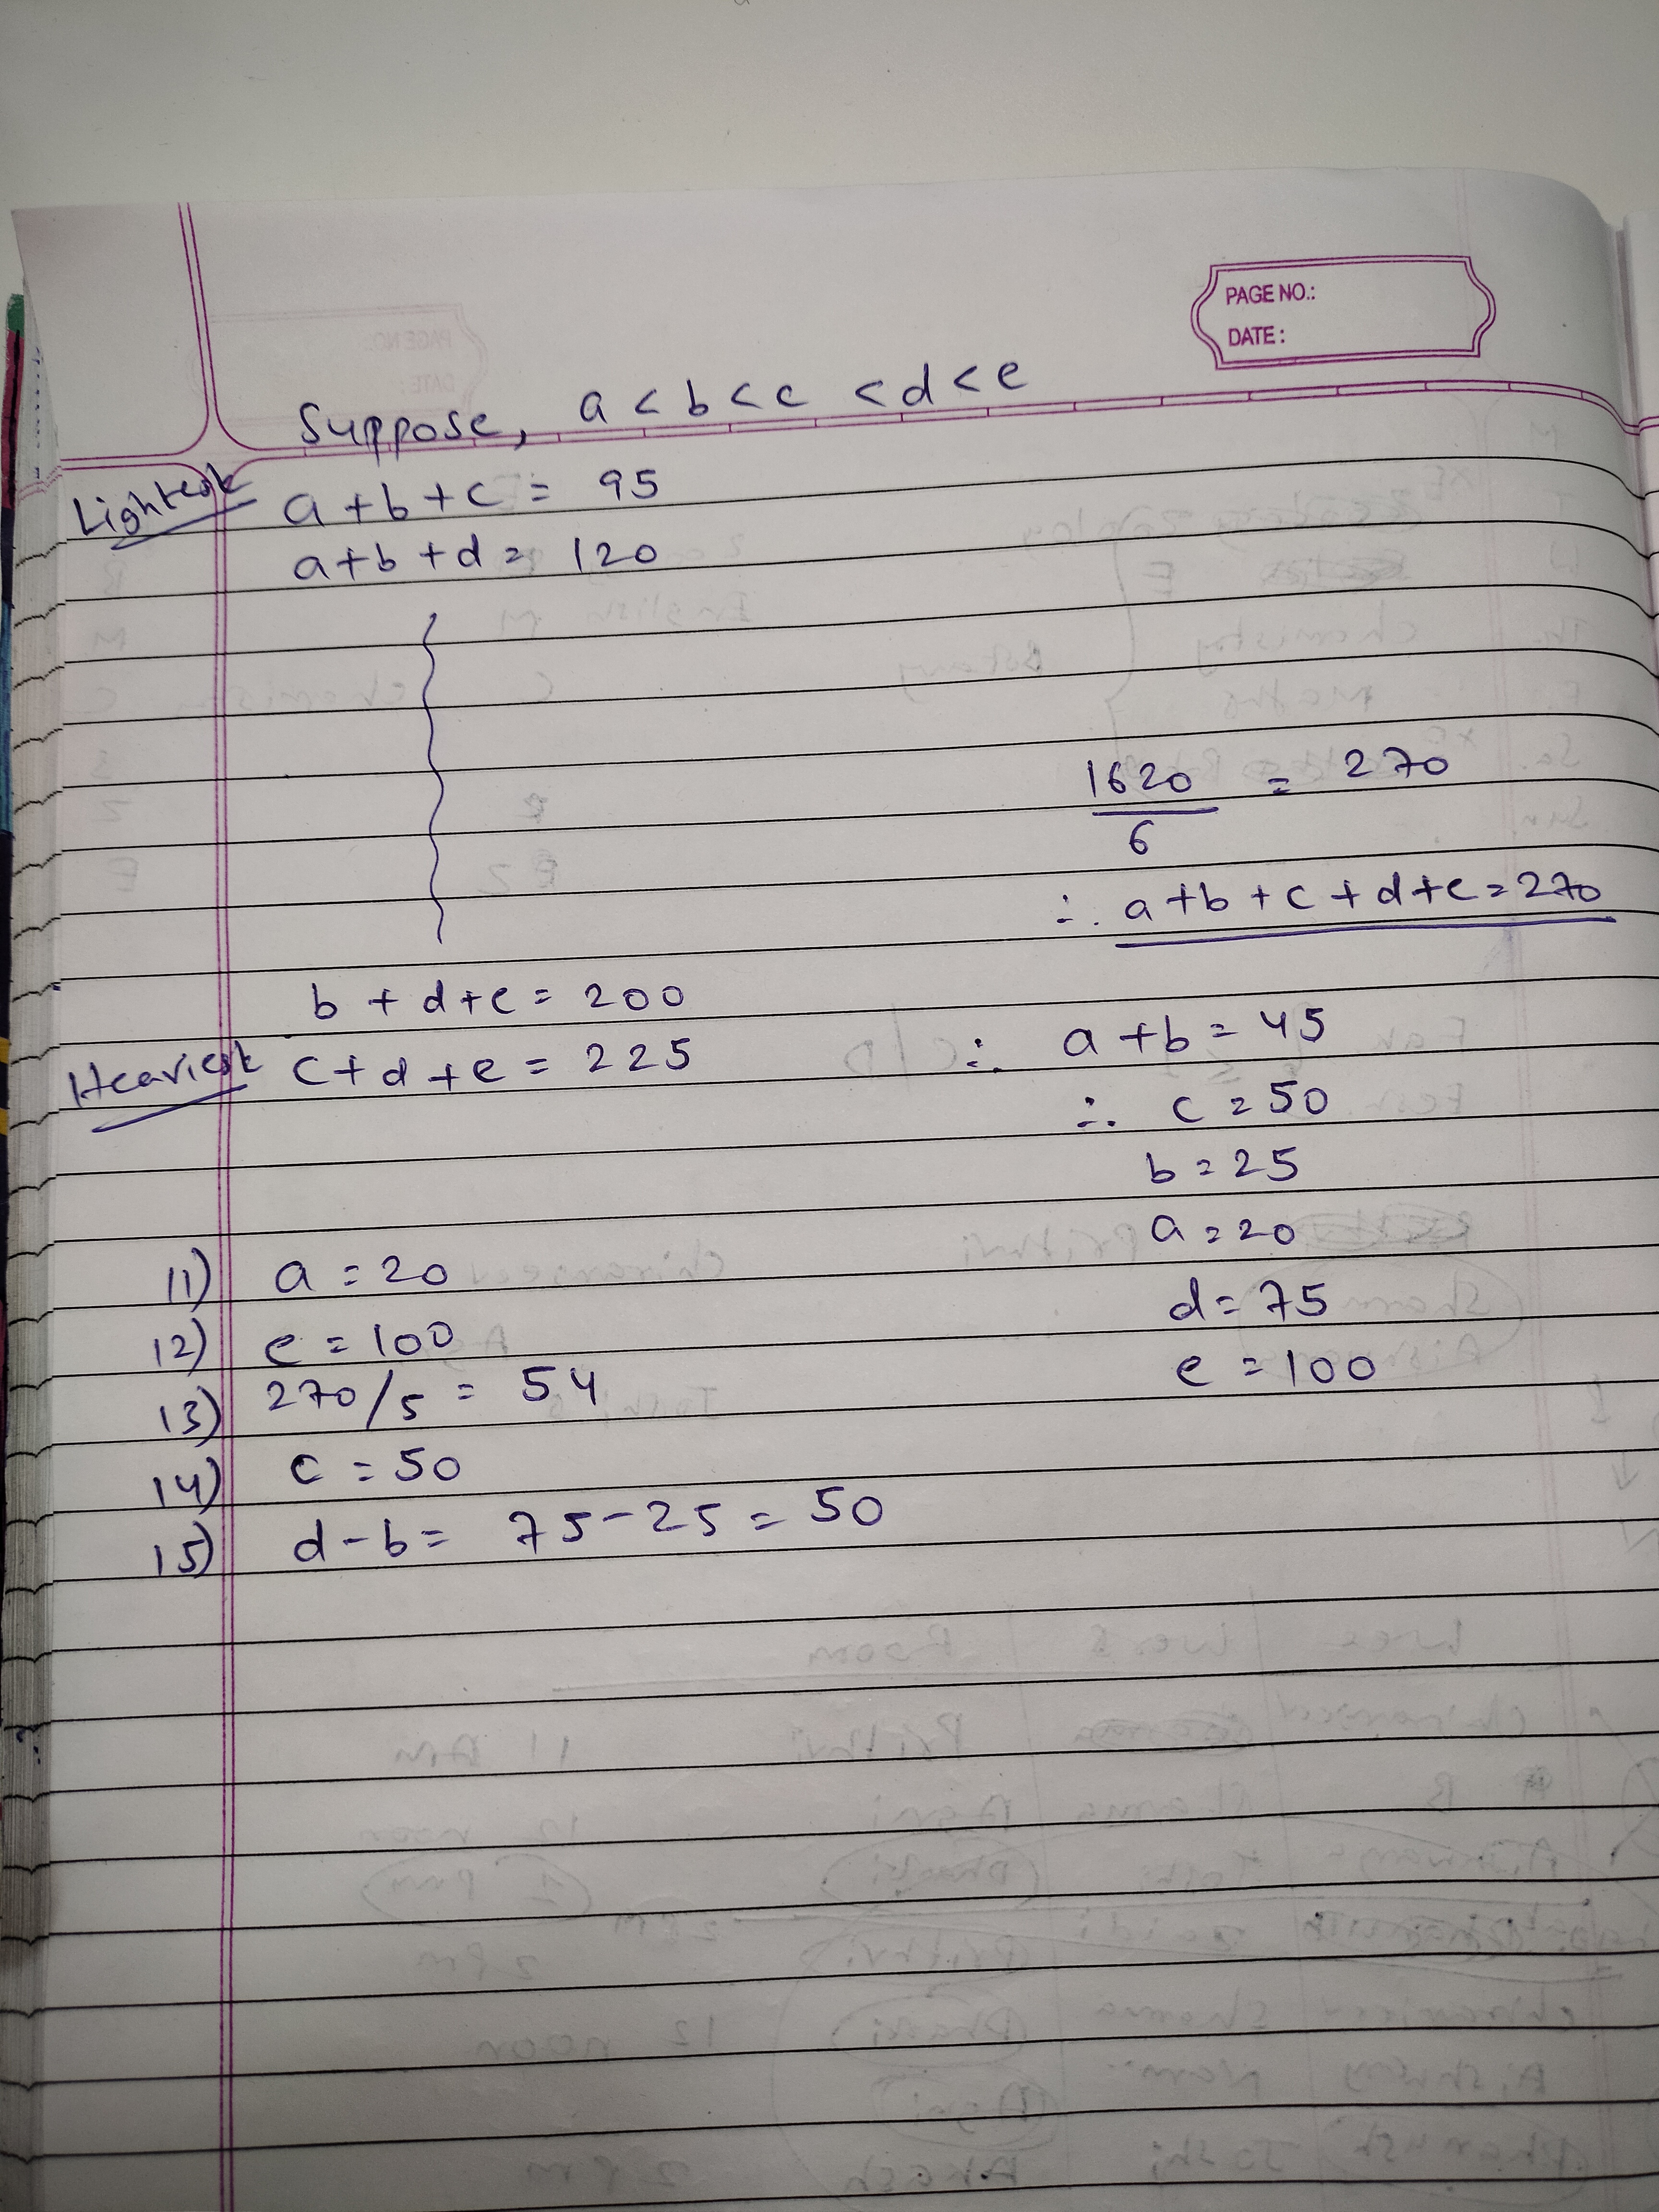 PAGE NO.:
DATE:
Suppose, a < b < c < d < e
Lightest a + b + c = 95
a + b + d = 120
1620 / 6 = 270
∴ a + b + c + d + e = 270
b + d + e = 200
Heaviest c + d + e = 225
∴ a + b = 45
∴ c = 50
b = 25
a = 20
d = 75
e = 100
11) a = 20
12) e = 100
13) 270/5 = 54
14) c = 50
15) d - b = 75 - 25 = 50